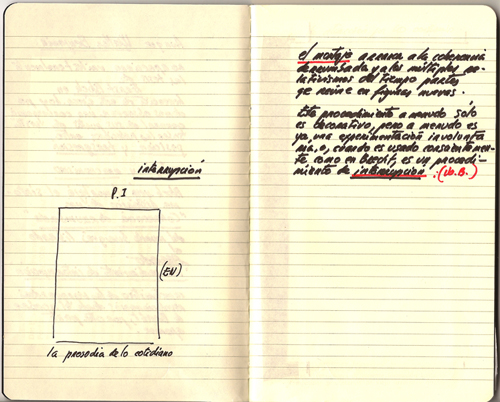 interrupción
P. I
(EN)
la prosodia de lo cotidiano
el montaje arranca a la coherencia
derrumbada y a los múltiples re-
lativismos del tiempo partes
qe reúne en figuras nuevas.
Este procedimiento a menudo sólo
es decorativo, pero a menudo es
ya una experimentación involunta
ria, o, cuando es usado conscientemen-
te como en Brecht, es un procedi-
miento de interrupción : (W.B.)